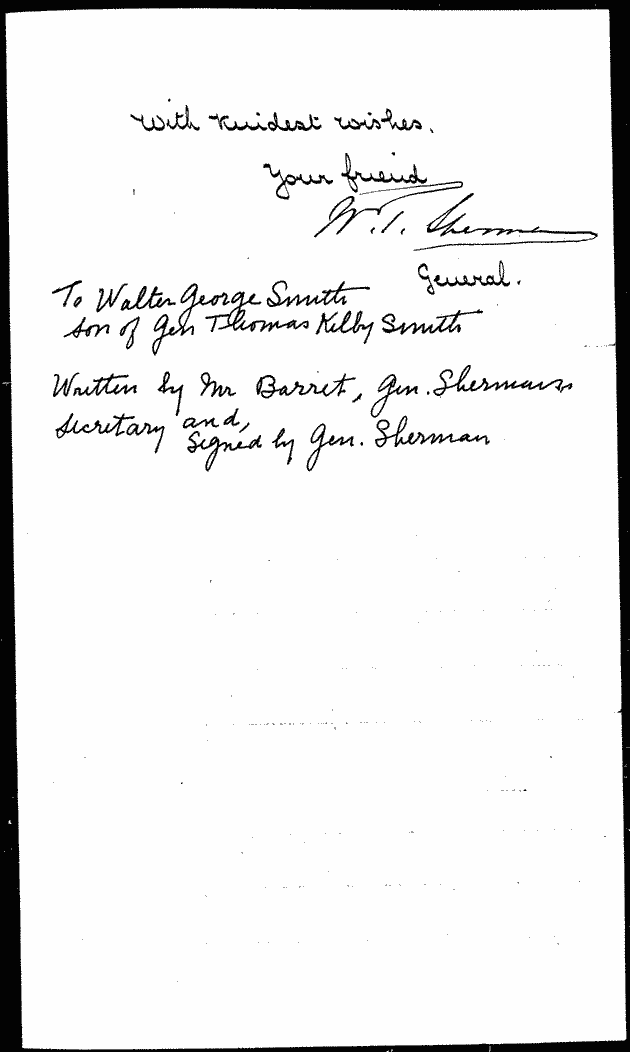 With kindest wishes.
Your friend
W. T. Sherman
General.
To Walter George Smith
son of Gen Thomas Kilby Smith
Written by Mr Barret, Gen. Sherman's
Secretary and,
Signed by Gen. Sherman